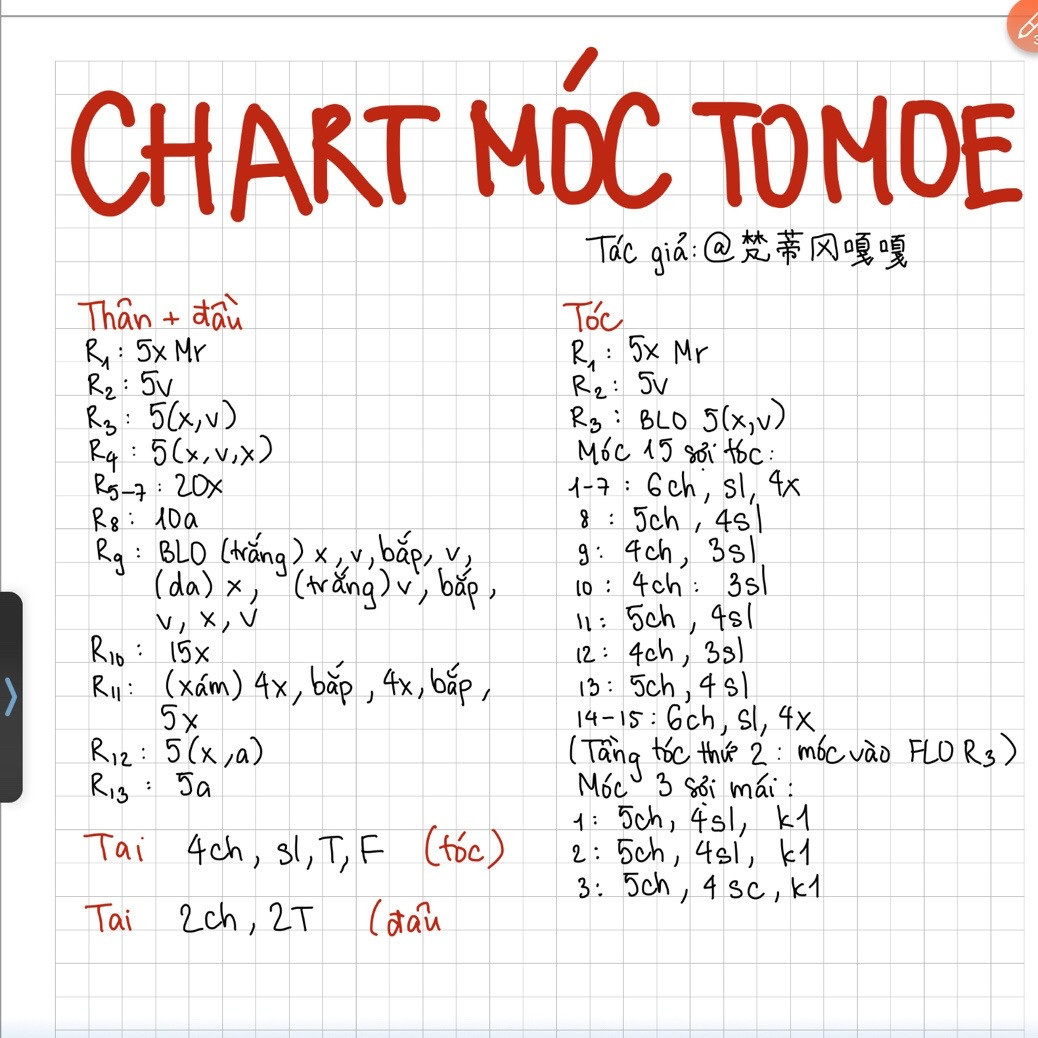 CHART MÓC TOMOE
Tác giả: @梵蒂冈嘎嘎
Thân + đầu
R1 : 5x Mr
R2 : 5v
R3 : 5(x,v)
R4 : 5(x,v,x)
R5-7 : 20x
R8 : 10a
R9 : BLO (trắng) x, v, bắp, v,
(da) x, (trắng) v, bắp,
v, x, v
R10 : 15x
R11 : (xám) 4x, bắp, 4x, bắp,
5x
R12 : 5(x,a)
R13 : 5a
Tai 4ch, sl, T, F (tóc)
Tai 2ch, 2T (đầu
Tóc
R1 : 5x Mr
R2 : 5v
R3 : BLO 5(x,v)
Móc 15 sợi tóc:
1-7 : 6ch, sl, 4x
8 : 5ch, 4sl
9: 4ch, 3sl
10 : 4ch : 3sl
11: 5ch, 4sl
12: 4ch, 3sl
13: 5ch, 4sl
14-15: 6ch, sl, 4x
(Tầng tóc thứ 2 : móc vào FLO R3)
Móc 3 sợi mái :
1: 5ch, 4sl, k1
2: 5ch, 4sl, k1
3: 5ch, 4sc, k1